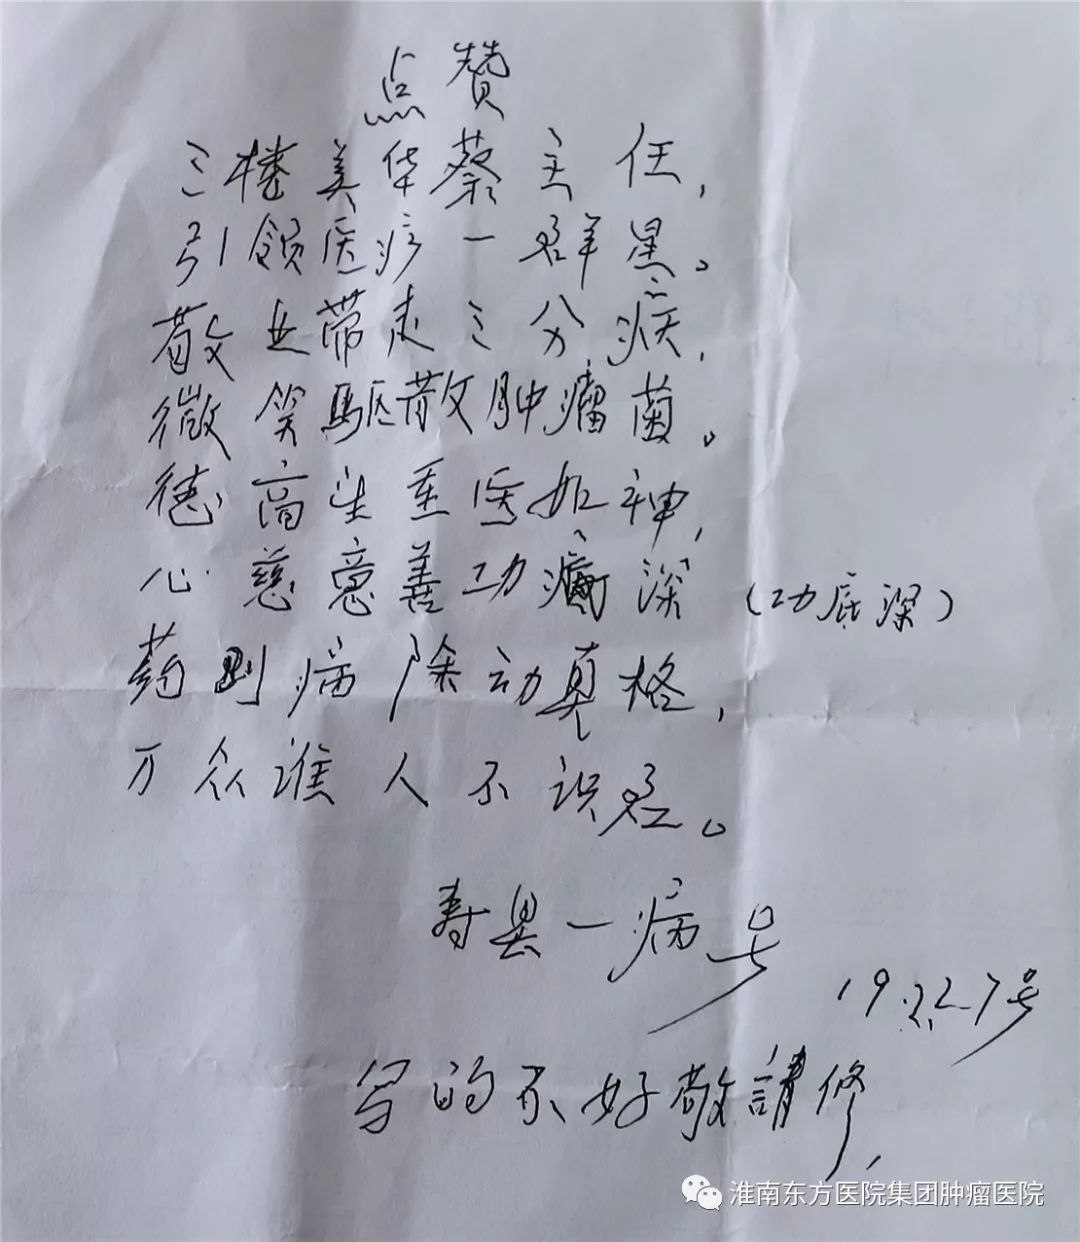 点赞
三楼姜华蔡主任,
引领医疗一群星。
敬业带走三分疾,
微笑驱散肿瘤菌。
德高望重医如神,
心慈意善功底深 (功底深)
药到病除动真格,
万众谁人不识君。
寿县一病号
19.2.27号
写的不好敬請修,
淮南东方医院集团肿瘤医院